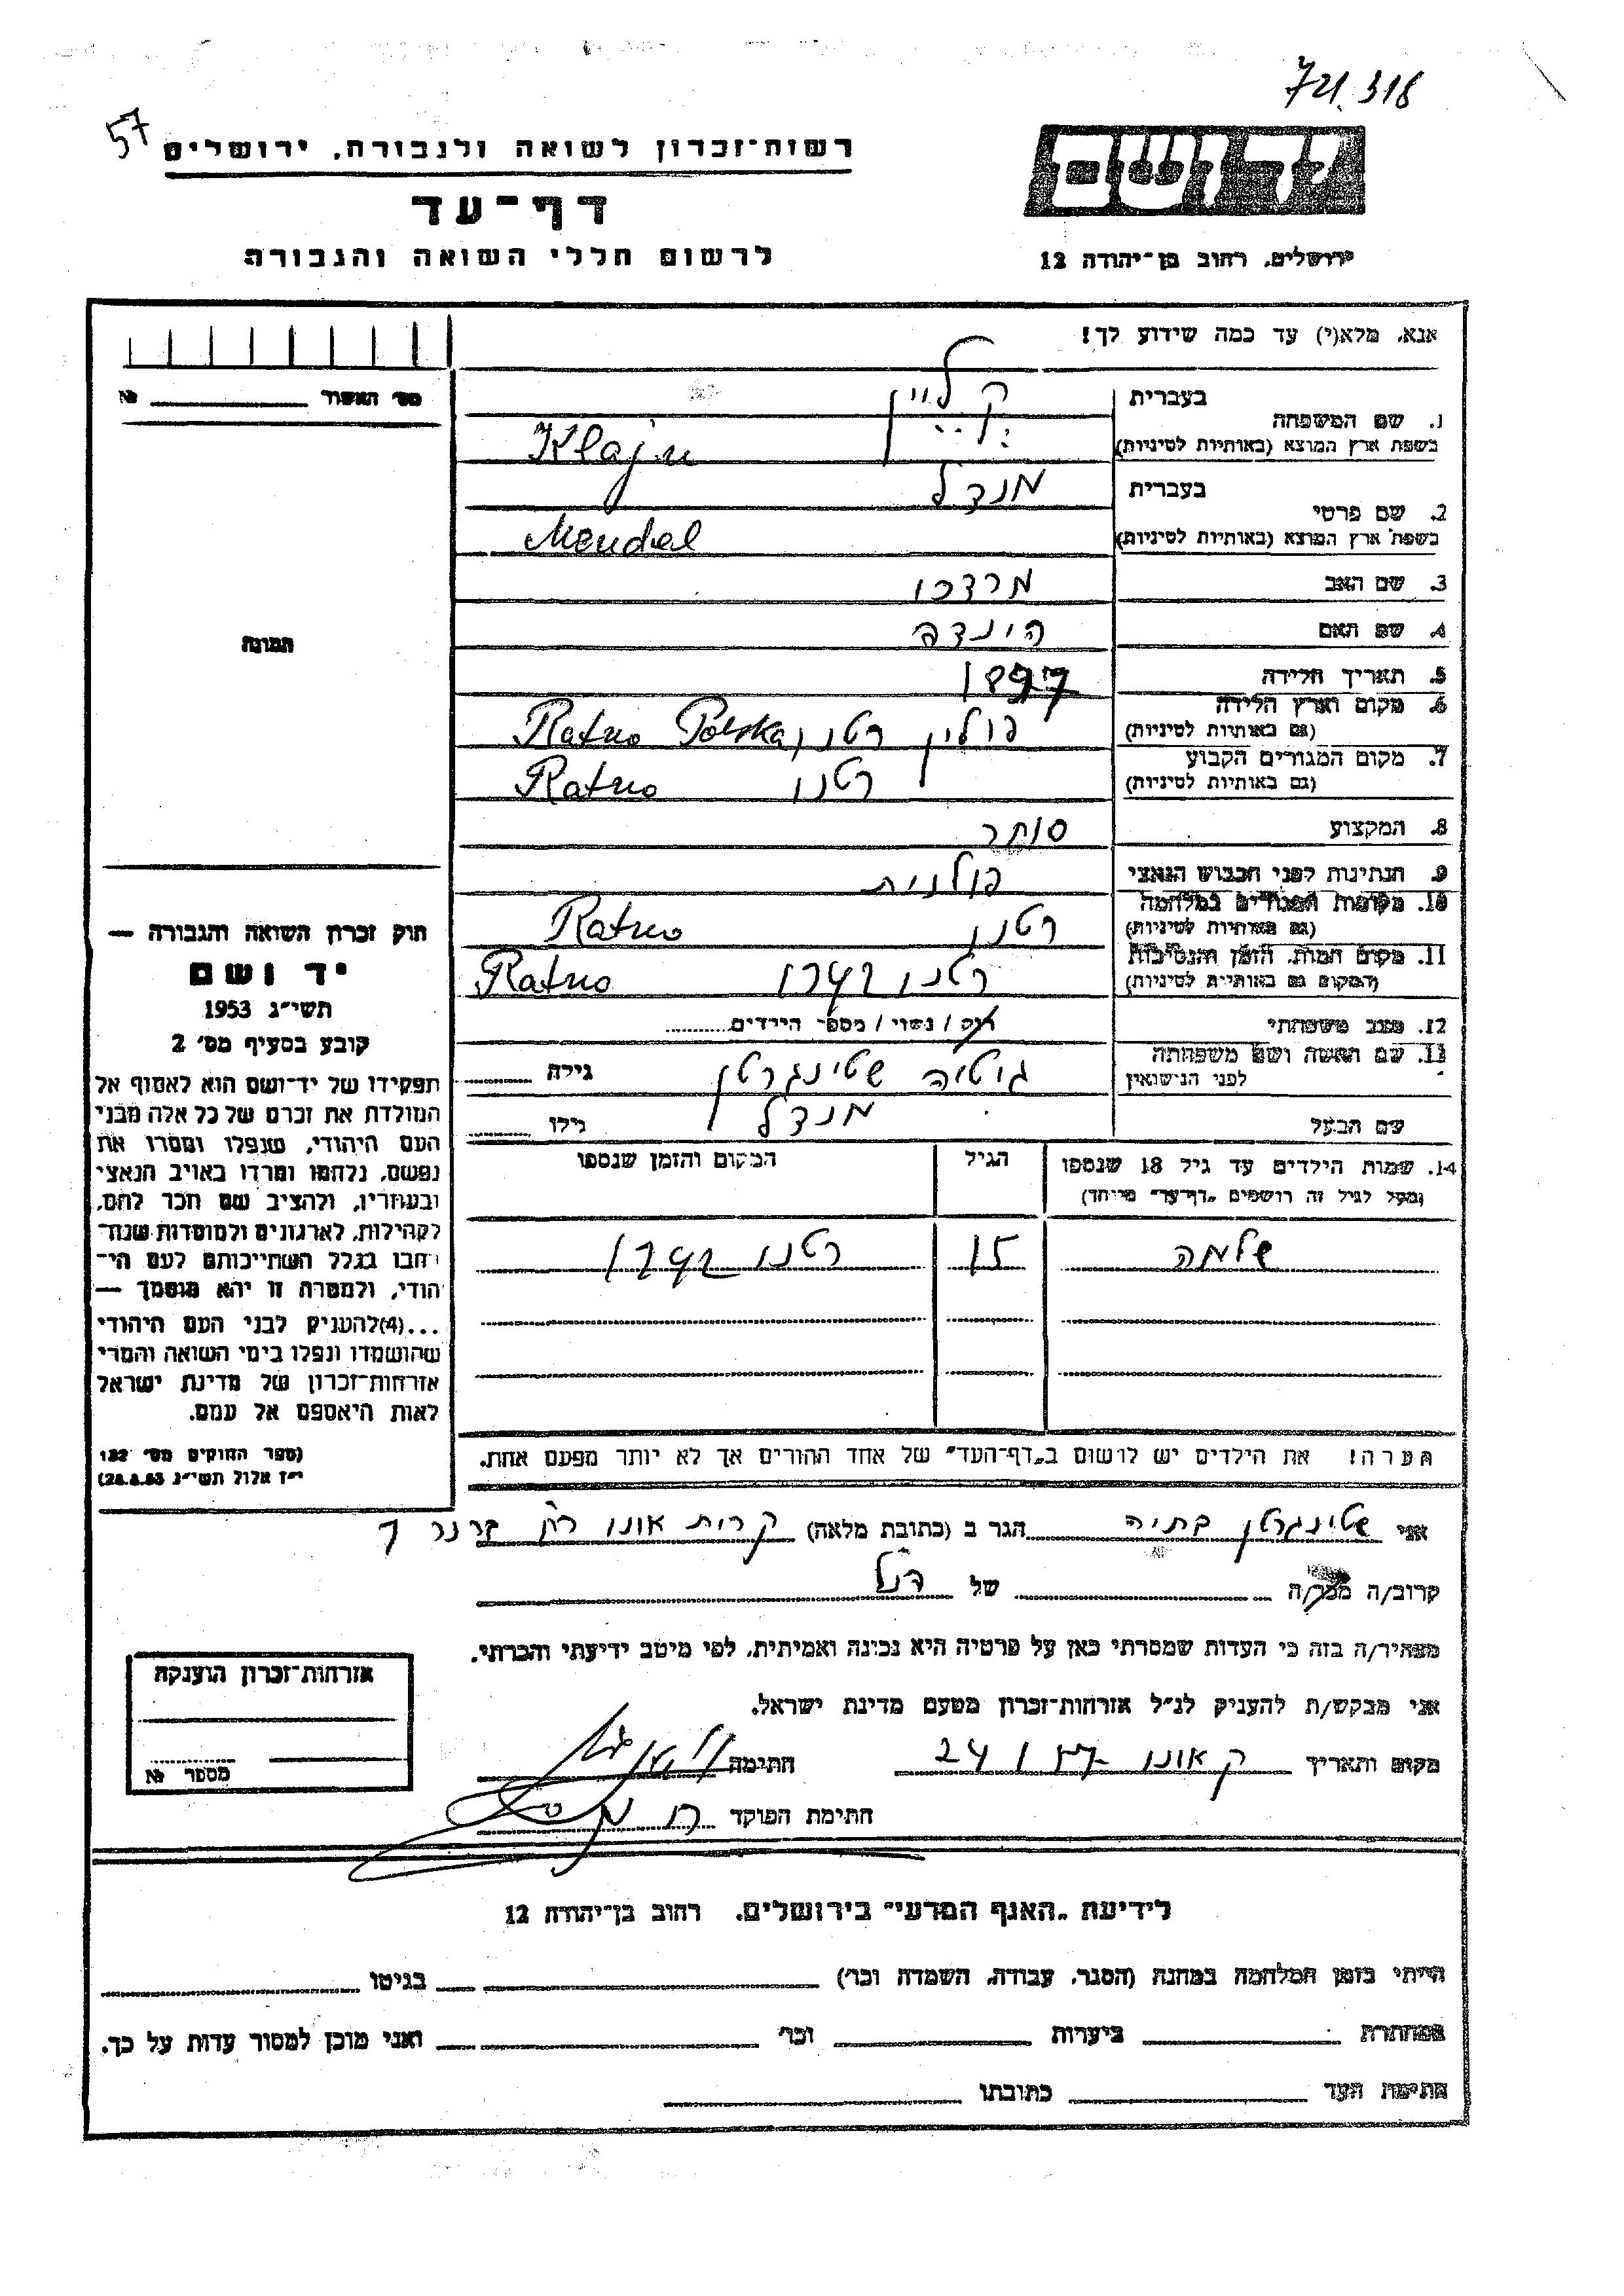 721.318
57
יד ושם
רשות־זכרון לשואה ולגבורה, ירושלים
דף־עד
לרשום חללי השואה והגבורה
ירושלים, רחוב בן־יהודה 12
אנא, מלא(י) עד כמה שידוע לך!
מס׳ האשור № 
תמונה
1. שם המשפחה
בעברית קליין
בשפת ארץ המוצא (באותיות לטיניות) Klajn
2. שם פרטי
בעברית מנדל
בשפת ארץ המוצא (באותיות לטיניות) Mendel
3. שם האב מרדכי
4. שם האם הינדה
5. תאריך הלידה 1897
6. מקום וארץ הלידה (גם באותיות לטיניות) פולין רטנו, Ratno Polska
7. מקום המגורים הקבוע (גם באותיות לטיניות) רטנו Ratno
8. המקצוע סוחר
9. הנתינות לפני הכבוש הנאצי פולנית
10. מקומות המגורים במלחמה (גם באותיות לטיניות) רטנו Ratno
11. מקום המות, הזמן והנסיבות (המקום גם באותיות לטיניות) רטנו 1942 Ratno
12. מצב משפחתי רוק / נשוי / מספר הילדים
13. שם האשה ושם משפחתה לפני הנישואין גיטיה שטינגרטן גילה
שם הבעל מנדל גילו
14. שמות הילדים עד גיל 18 שנספו הגיל המקום והזמן שנספו
(מעל לגיל זה רושמים „דף־עד״ מיוחד)
שלמה 15 רטנו 1942
הערה! את הילדים יש לרשום ב„דף־העד״ של אחד ההורים אך לא יותר מפעם אחת.
חוק זכרון השואה והגבורה —
יד ושם
תשי״ג 1953
קובע בסעיף מס׳ 2
תפקידו של יד־ושם הוא לאסוף אל
המולדת את זכרם של כל אלה מבני
העם היהודי, שנפלו ומסרו את
נפשם, נלחמו ומרדו באויב הנאצי
ובעוזריו, ולהציב שם וזכר להם,
לקהילות, לארגונים ולמוסדות שנח־
רבו בגלל השתייכותם לעם הי־
הודי, ולמטרת זו יהא מוסמך —
...(4)להעניק לבני העם היהודי
שהושמדו ונפלו בימי השואה והמרי
אזרחות־זכרון של מדינת ישראל
לאות היאספם אל עמם.
(ספר החוקים מס׳ 132
י״ז אלול תשי״ג 28.8.53)
אני שטינגרטן בתיה הגר ב (כתובת מלאה) קרית אונו
קרוב/ה מכר/ה של הנ״ל
מצהיר/ה בזה כי העדות שמסרתי כאן על פרטיה היא נכונה ואמיתית, לפי מיטב ידיעתי והכרתי.
אני מבקש/ת להעניק לנ״ל אזרחות־זכרון מטעם מדינת ישראל.
מקום ותאריך ק אונו חתימה
חתימת הפוקד
אזרחות־זכרון הוענקה
מספר №
לידיעת „האגף המדעי״ בירושלים, רחוב בן־יהודה 12
הייתי בזמן המלחמה במחנה (הסגר, עבודה, השמדה וכו׳) בגיטו
במחתרת ביערות וכו׳ ואני מוכן למסור עדות על כך.
חתימת העד כתובתו